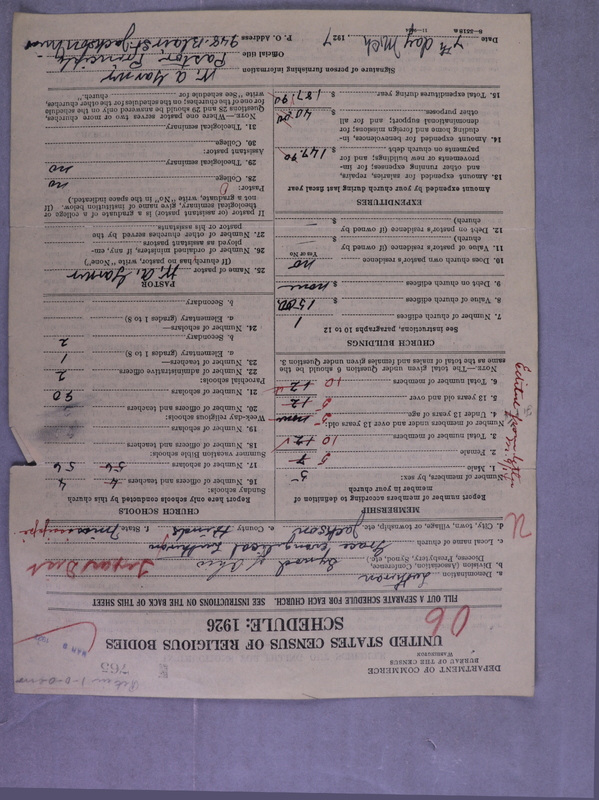 DEPARTMENT OF COMMERCE
BUREAU OF THE CENSUS
WASHINGTON
763
UNITED STATES CENSUS OF RELIGIOUS BODIES
SCHEDULE: 1926
FILL OUT A SEPARATE SCHEDULE FOR EACH CHURCH. SEE INSTRUCTIONS ON THE BACK OF THIS SHEET
a. Denomination Lutheran
b. Division (Association, Conference, Diocese, Presbytery, Synod, etc.) Synod of Ohio
c. Local name of church Grace Evangelical Lutheran
d. City, town, village, or township, etc. Jackson e. County Hinds f. State Mississippi
MEMBERSHIP
Report number of members according to definition of member in your church
Number of members, by sex:
1. Male 5
2. Female 7 5
3. Total number of members 12 10
Number of members under and over 13 years old:
4. Under 13 years of age
5. 13 years old and over 12
6. Total number of members 12 10
NOTE.—The total given under Question 6 should be the same as the total of males and females given under Question 3.
CHURCH BUILDINGS
See instructions, paragraphs, 10 to 12
7. Number of church edifices 1
8. Value of church edifices $ 1500
9. Debt on church edifices $ none
10. Does church own pastor's residence? no
Yes or No
11. Value of pastor's residence (if owned by church) $
12. Debt on pastor's residence (if owned by church) $
EXPENDITURES
Amount expended by your church during last fiscal year
13. Amount expended for salaries, repairs, and other running expenses; for improvements or new buildings; and for payments on church debt $ 147.90
14. Amount expended for benevolences, including home and foreign missions; for denominational support; and for all other purposes $ 40.00
15. Total expended during year $ 187.90
CHURCH SCHOOLS
Report here only schools conducted by this church
Sunday schools:
16. Number of officers and teachers 4 4
17. Number of scholars 56 56
Summer vacation Bible schools:
18. Number of officers and teachers
19. Number of scholars
Week-day religious schools:
20. Number of officers and teachers
21. Number of scholars
Parochial schools:
22. Number of administrative officers 2
23. Number of teachers—
a. Elementary (grades 1 to 8) 1
b. Secondary 2
24. Number of scholars—
a. Elementary (grades 1 to 8)
b. Secondary
PASTOR
25. Name of pastor
(If church has no pastor, write "None")
26. Number of ordained ministers, if any, employed as assistant pastors
27. Number of other churches served by the pastor or his assistants
If pastor (or assistant pastor) is a graduate of a college or theological seminary, give name of institution below. (If not a graduate, write "No" in the space indicated.)
Pastor:
28. College no
29. Theological seminary no
Assistant pastor:
30. College
31. Theological seminary
NOTE.—Where one pastor serves two or more churches, Questions 28 and 29 should be answered only on the schedule for one of the churches; on the schedules for the other churches, write "See schedule for church."
Signature of person furnishing information
Official title Pastor, Principle
P. O. Address 948 Blair St Jackson Miss
Date 7th day Mch, 1927